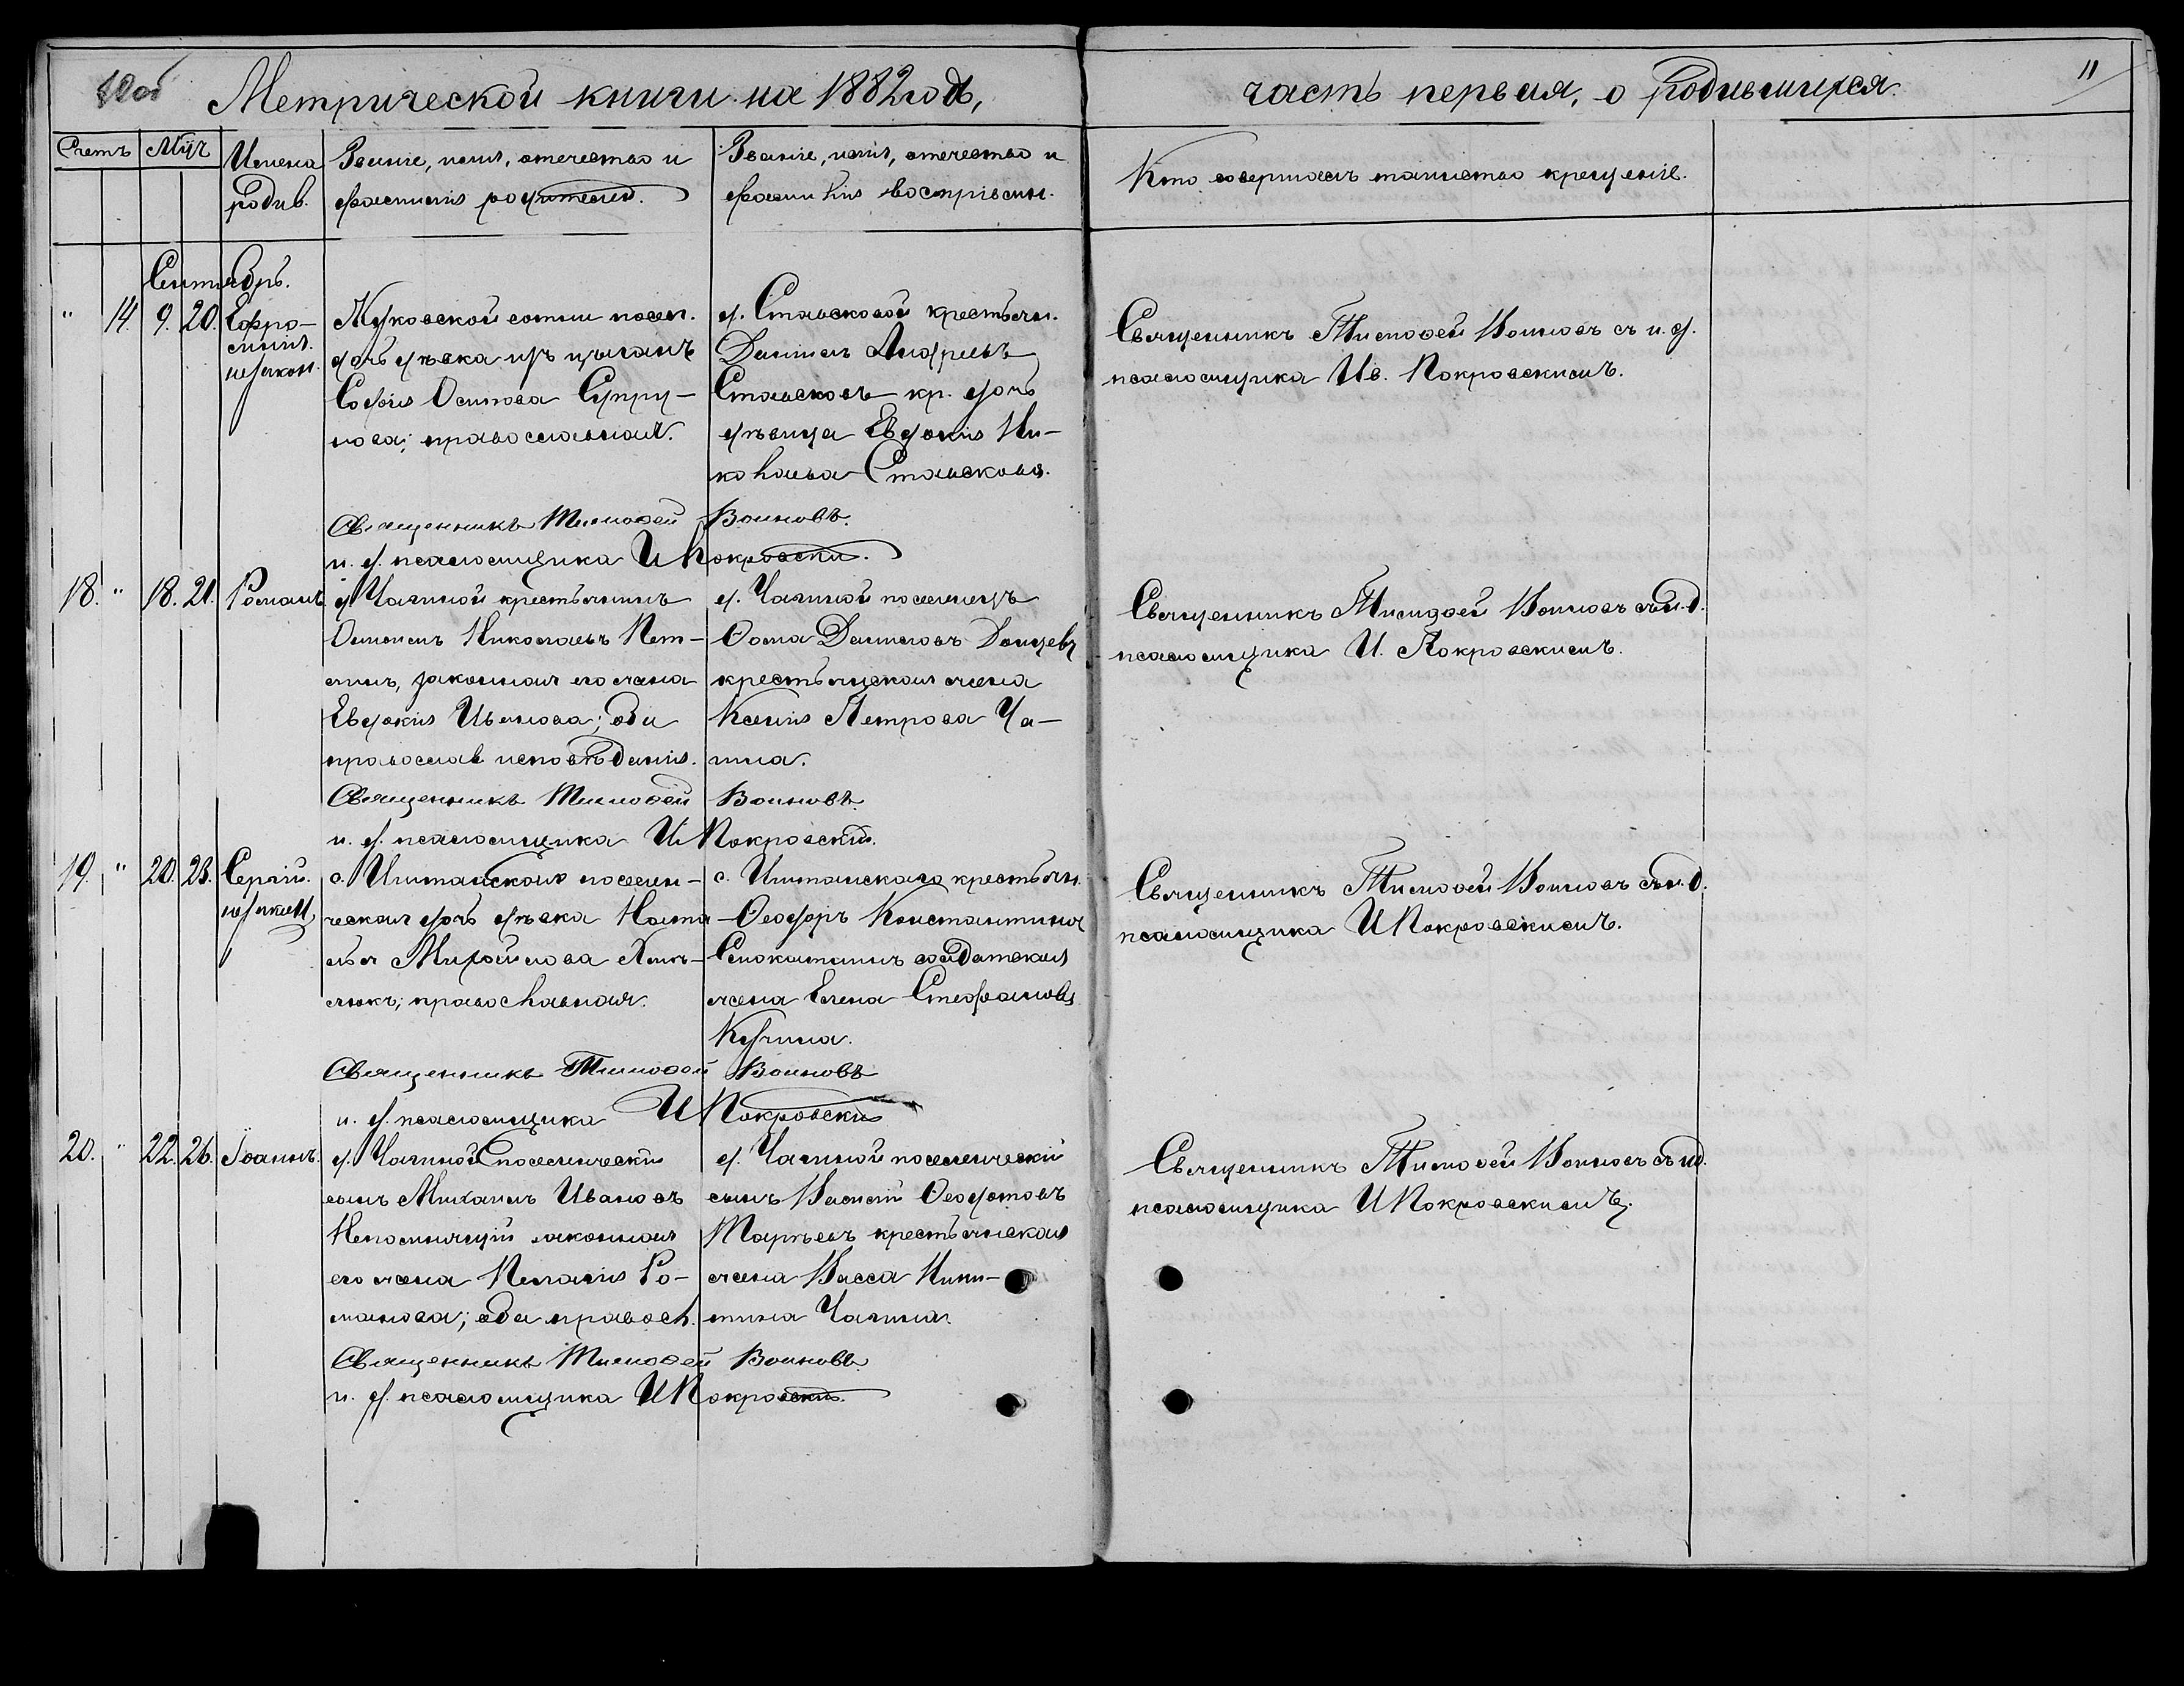 10об
Метрической книги на 1882 годъ,
часть первая, о родившихся.
11
Счетъ
М-цъ
Имена родив.
Званіе, имя, отечество и фамилія родителей.
Званіе, имя, отечество и фамилія воспріемн.
Кто совершалъ таинство крещенія.
Сентябрь.
" 14. 9. 20. Ефро-
синія.
незакон.
сотни посел.
дочь дѣвка изъ цыганъ
Софія Осипова Супру-
нова; православная.
д. Стальсковой крестьян.
Даніилъ Андреевъ
Стальсковъ кр. дочь
дѣвица Евдокія Ни-
колаева Стальскова.
Священникъ Тимофей Воиновъ съ и. д.
псаломщика Ив. Покровскимъ.
Священникъ Тимофей Воиновъ.
и. д. псаломщика И Покровскій.
18. " 18. 21. Романъ
д. Чагиной крестьянинъ
Николаевъ Пет-
, законная его жена
Евдокія Иванова; оба
православ исповѣданія.
д. Чагиной поселенецъ
Ѳома Даниловъ Донцевъ
крестьянская жена
Ксенія Петрова Ча-
гина.
Священникъ Тимофей Воиновъ съ и.д.
псаломщика И. Покровскимъ.
Священникъ Тимофей Воиновъ.
и. д. псаломщика И Покровскій.
19. " 20. 23. Сергій.
незакон
с. поселен-
ческая дочь дѣвка Ната-
лья Михайлова
; православная.
с. крестьян.
Ѳеодоръ Константинов
солдатская
жена Елена Стефанова
Кузина.
Священникъ Тимофей Воиновъ съ и.д.
псаломщика И Покровскимъ.
Священникъ Тимофей Воиновъ
и. д. псаломщика И Покровскій
20. " 22. 26. Іоаннъ.
д. Чагиной поселенческій
сынъ Михаилъ Ивановъ
Непомнящій законная
его жена Пелагія Ро-
манова; оба правосл.
д. Чагиной поселенческій
сынъ Василій Ѳедотовъ
крестьянская
жена Васса Ники-
тина Чагина.
Священникъ Тимофей Воиновъ съ и.д.
псаломщика И Покровскимъ.
Священникъ Тимофей Воиновъ.
и. д. псаломщика И Покровскій.